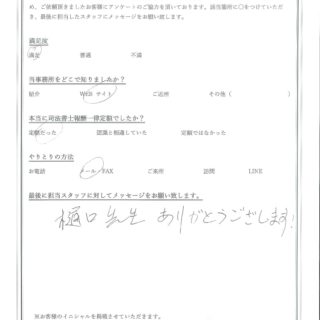 め、ご依頼頂きましたお客様にアンケートのご協力を頂いております。該当箇所に○をつけていただ
き、最後に担当したスタッフにメッセージをお願い致します。
満足度
満足 普通 不満
当事務所をどこで知りましたか？
紹介 WEB サイト ご近所 その他（ ）
本当に司法書士報酬一律定額でしたか？
定額だった 認識と相違していた 定額ではなかった
やりとりの方法
お電話 メール・FAX ご来所 訪問 LINE
最後に担当スタッフに対してメッセージをお願い致します。
樋口先生 ありがとうございます！
※お客様のイニシャルを掲載させていただきます。